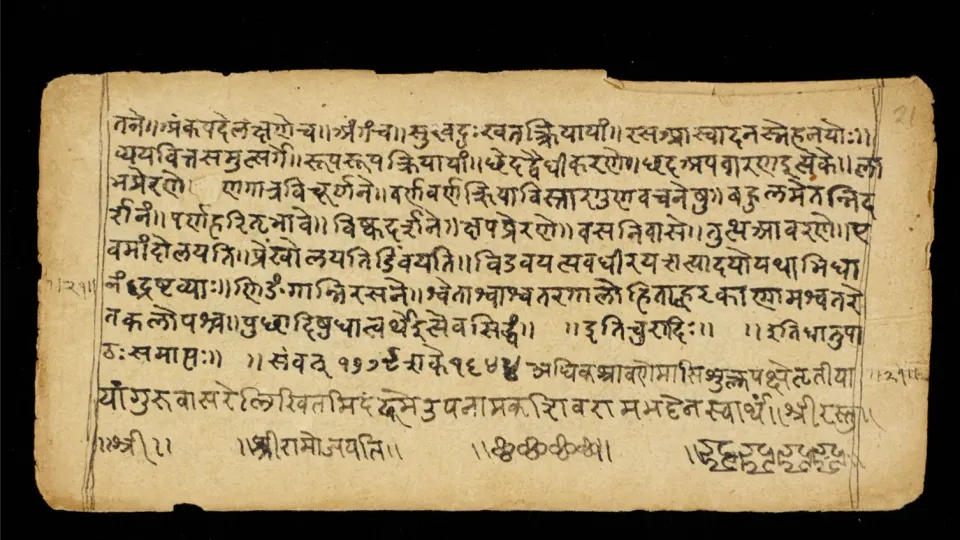 तने॥ अंक पदे लक्षणे च॥ अंग च॥ सुख दुःख तत्क्रियायां॥ रस आस्वादनस्नेहनयोः॥
व्यय वित्तसमुत्सर्गे॥ रूप रूपक्रियायां॥ छेद द्वैधीकरणे॥ छद अपवारण इत्येके॥ ला
भ प्रेरणे॥ व्रण गात्रविचूर्णने॥ वर्ण वर्णक्रियाविस्तारगुणवचनेषु॥ बहुलमेतन्निद
र्शनं॥ पर्ण हरितभावे॥ विष्क दर्शने॥ क्षप प्रेरणे॥ वस निवासे॥ तुत्थ आवरणे॥ ए
वमांदोलयति॥ प्रेंखोलयति विडंबयति॥ अवधीरय इत्यादयो यथाभिधा
नं द्रष्टव्याः॥ णिङंगान्निरसने॥ श्वेताश्वाश्वतरगालोहिताह्वरकाणामश्वतरे
तकलोपश्च॥ पुच्छादिषु धात्वर्थ इत्येव सिद्धं॥ ॥इति चुरादिः॥ ॥इति धातुपा
ठः समाप्तः॥ ॥संवत् १७७९ शके १६४४ अधिकश्रावणे मासि शुक्लपक्षे तृतीया
यां गुरुवासरे लिखितमिदं उपनामक रामभट्टेन स्वार्थं॥ श्रीरस्तु॥
॥श्री॥ ॥श्रीरामो जयति॥
21
॥२१॥
॥२१॥